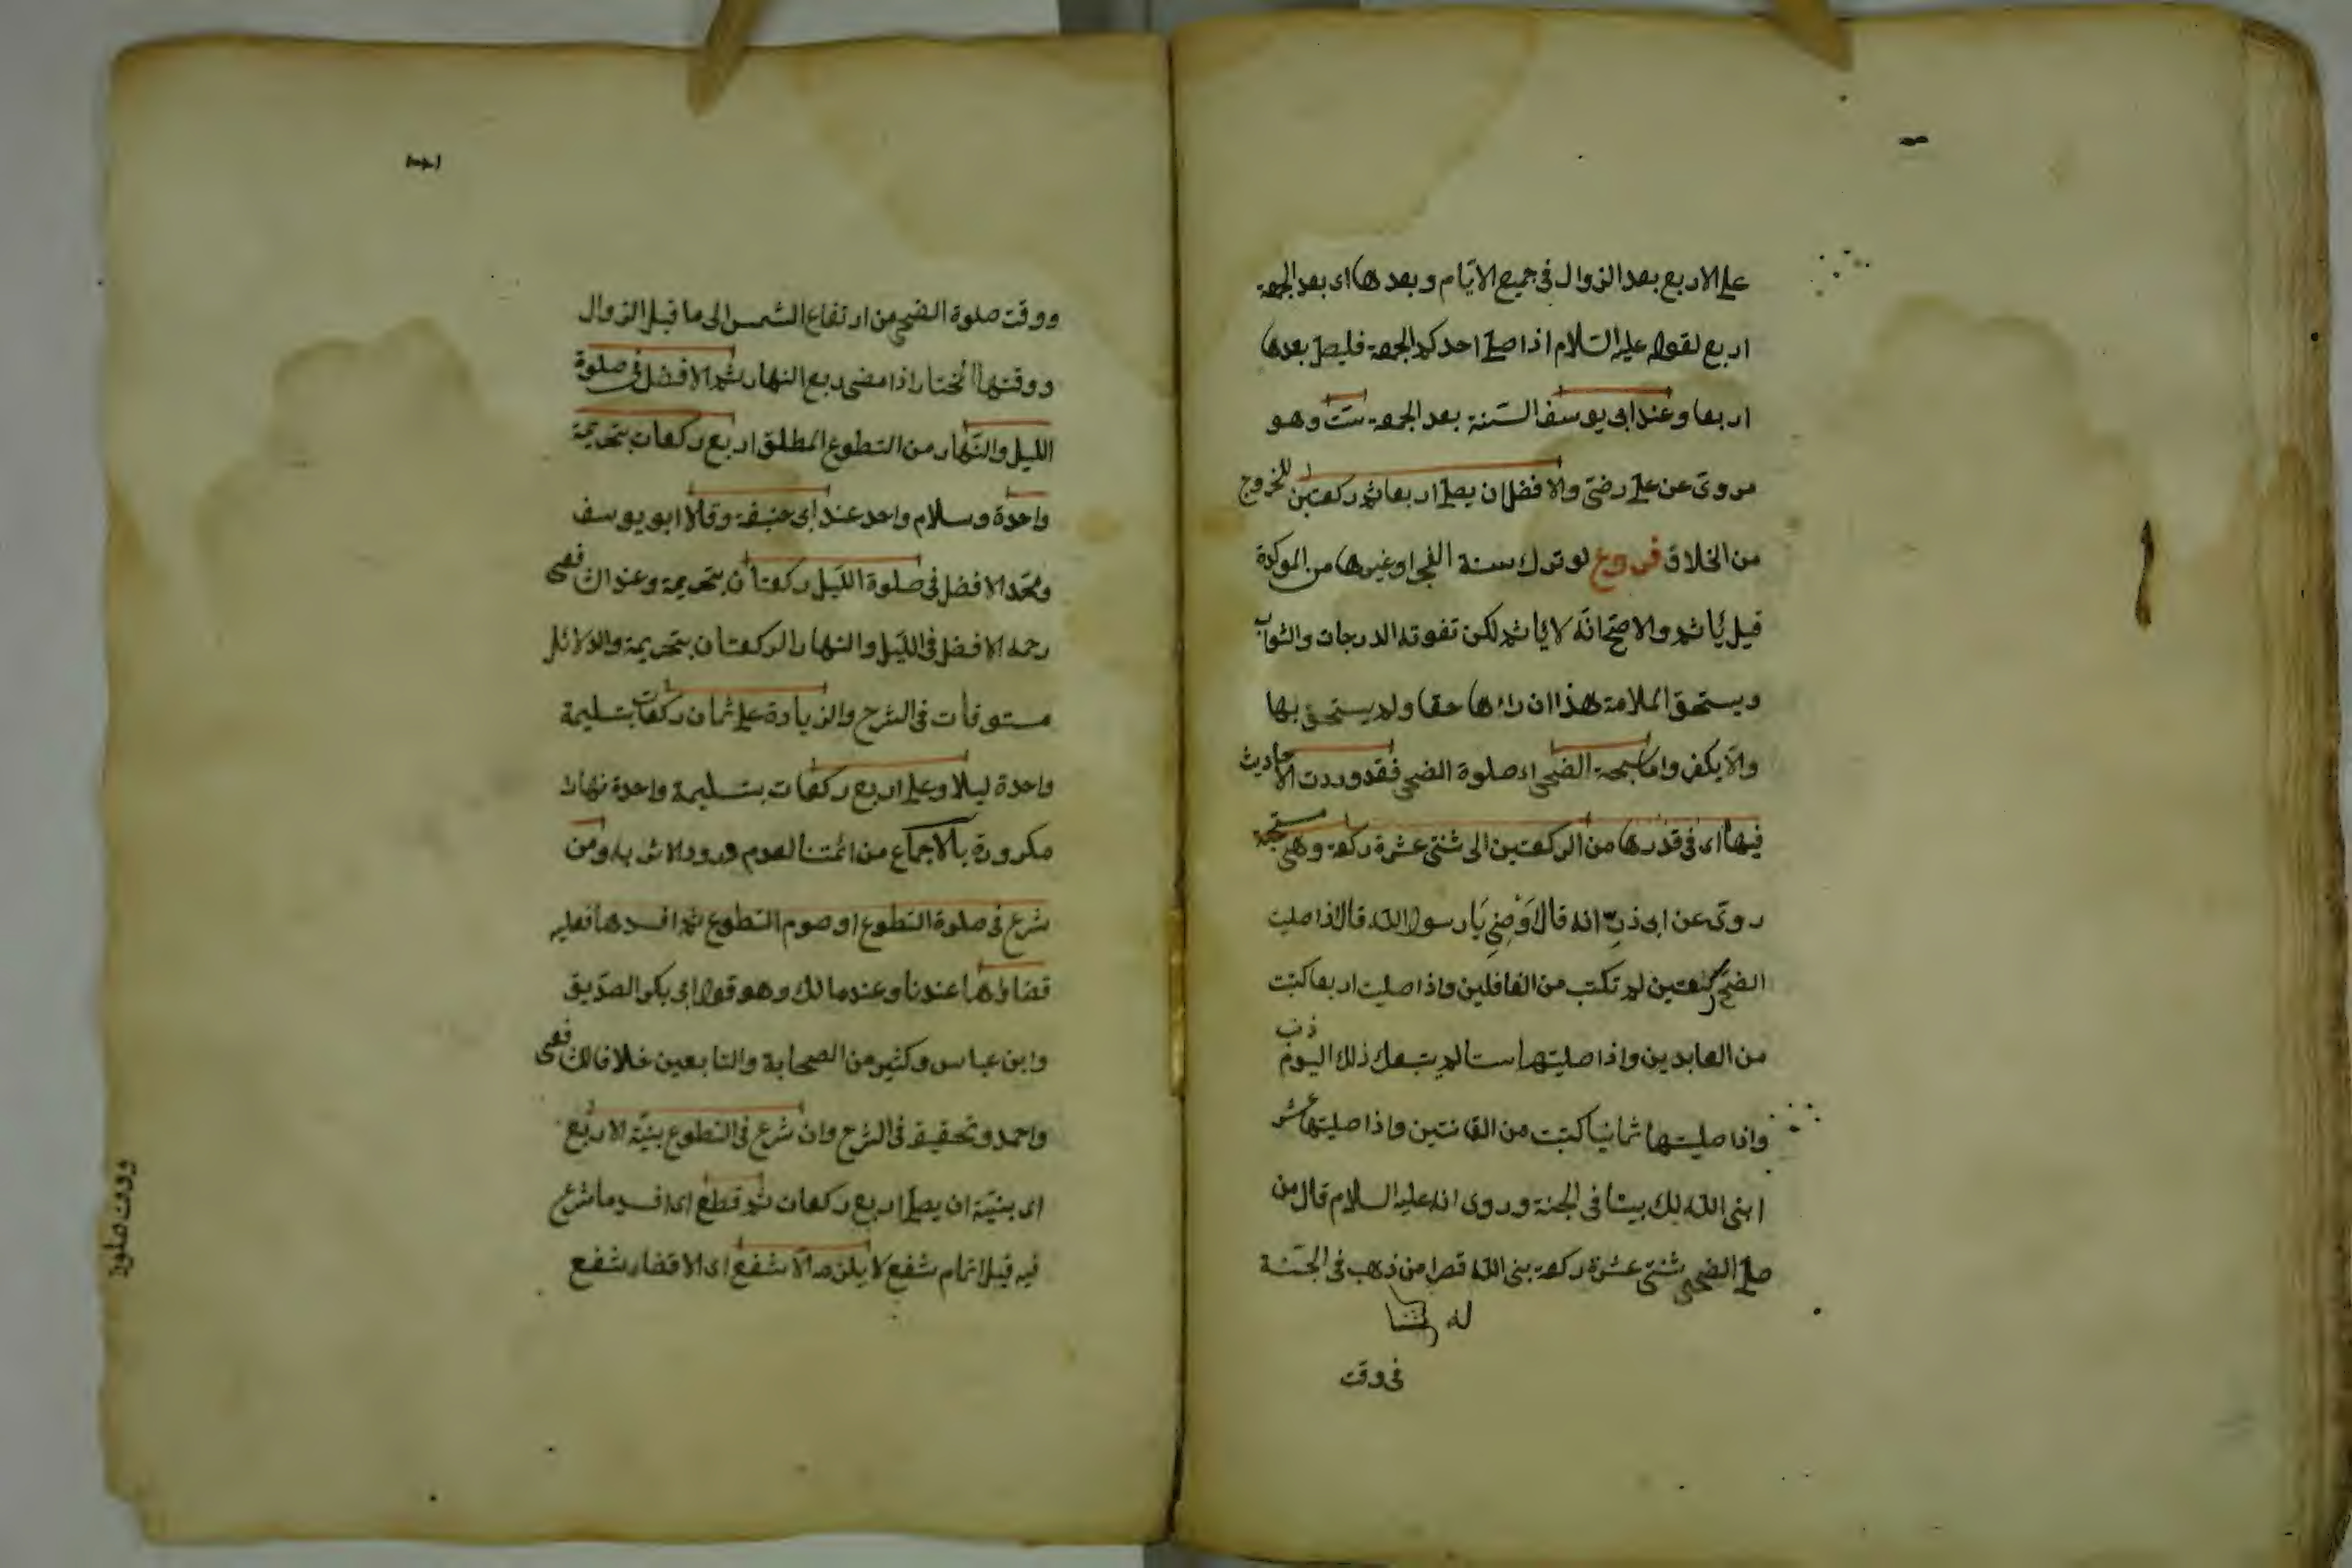 على الاربع بعد الزوال فى جميع الايام وبعدها اى بعد الجمعة
اربع لقوله عليه السلام اذا صلى احدكم الجمعة فليصل بعدها
اربعا وعند ابى يوسف السنة بعد الجمعة ست وهو
مروى عن على رضى والافضل ان يصلى اربعا ثم ركعتين للخروج
من الخلاف فروع لو ترك سنة الفجر او غيرها من الموكدة
قيل يأثم والاصح انه لا يأثم لكن تفوته الدرجات والثواب
ويستحق الملامة هذا ان رأها حقا ولم يستحق بها
والا يكفر واما سبحة الضحى اى صلوة الضحى فقد وردت الاحاديث
فيها اى فى قدرها من الركعتين الى ثنتى عشرة ركعة وهى مستحبة
روى عن ابى ذر انه قال اوصنى يا رسول الله قال اذا صليت
الضحى ركعتين لم تكتب من الغافلين واذا صليت اربعا كتبت
من العابدين واذا صليتها ستا لم يتبعك ذلك اليوم ذنب
واذا صليتها ثمانيا كتبت من القانتين واذا صليتها عشر
ابنى الله لك بيتا فى الجنة وروى انه عليه السلام قال من
صلى الضحى ثنتى عشرة ركعة بنى الله قصرا من ذهب فى الجنة
له
فى وقت
ووقت صلوة الضحى من ارتفاع الشمس الى ما قبل الزوال
ووقتها المختار اذا مضى ربع النهار ثم الافضل فى صلوة
الليل والنهار من التطوع المطلق اربع ركعات بتحريمة
واحدة وسلام واحد عند ابى حنيفة وقالا ابو يوسف
ومحمد الافضل فى صلوة الليل ركعتان بتحريمة وعند الشافعى
رحمه الافضل فى الليل والنهار الركعتان بتحريمة والدلائل
مستوفات فى الشرح والزيادة على ثمان ركعات بتسليمة
واحدة ليلا وعلى اربع ركعات بتسليمة واحدة نهارا
مكروهة بالاجماع من ائمتنا لعدم ورود الاثر به ومن
شرع فى صلوة التطوع او صوم التطوع ثم افسدها فعليه
قضاؤها عندنا وعند مالك وهو قول ابى بكر الصديق
وابن عباس وكثير من الصحابة والتابعين خلافا للشافعى
واحمد وتحقيقه فى الشرح وان شرع فى التطوع بنية الاربع
اى بنية ان يصلى اربع ركعات ثم قطع اى افسد ما شرع
فيه قبل اتمام شفع لا يلزمه الا شفع اى الا قضاء شفع
ووقت صلوة